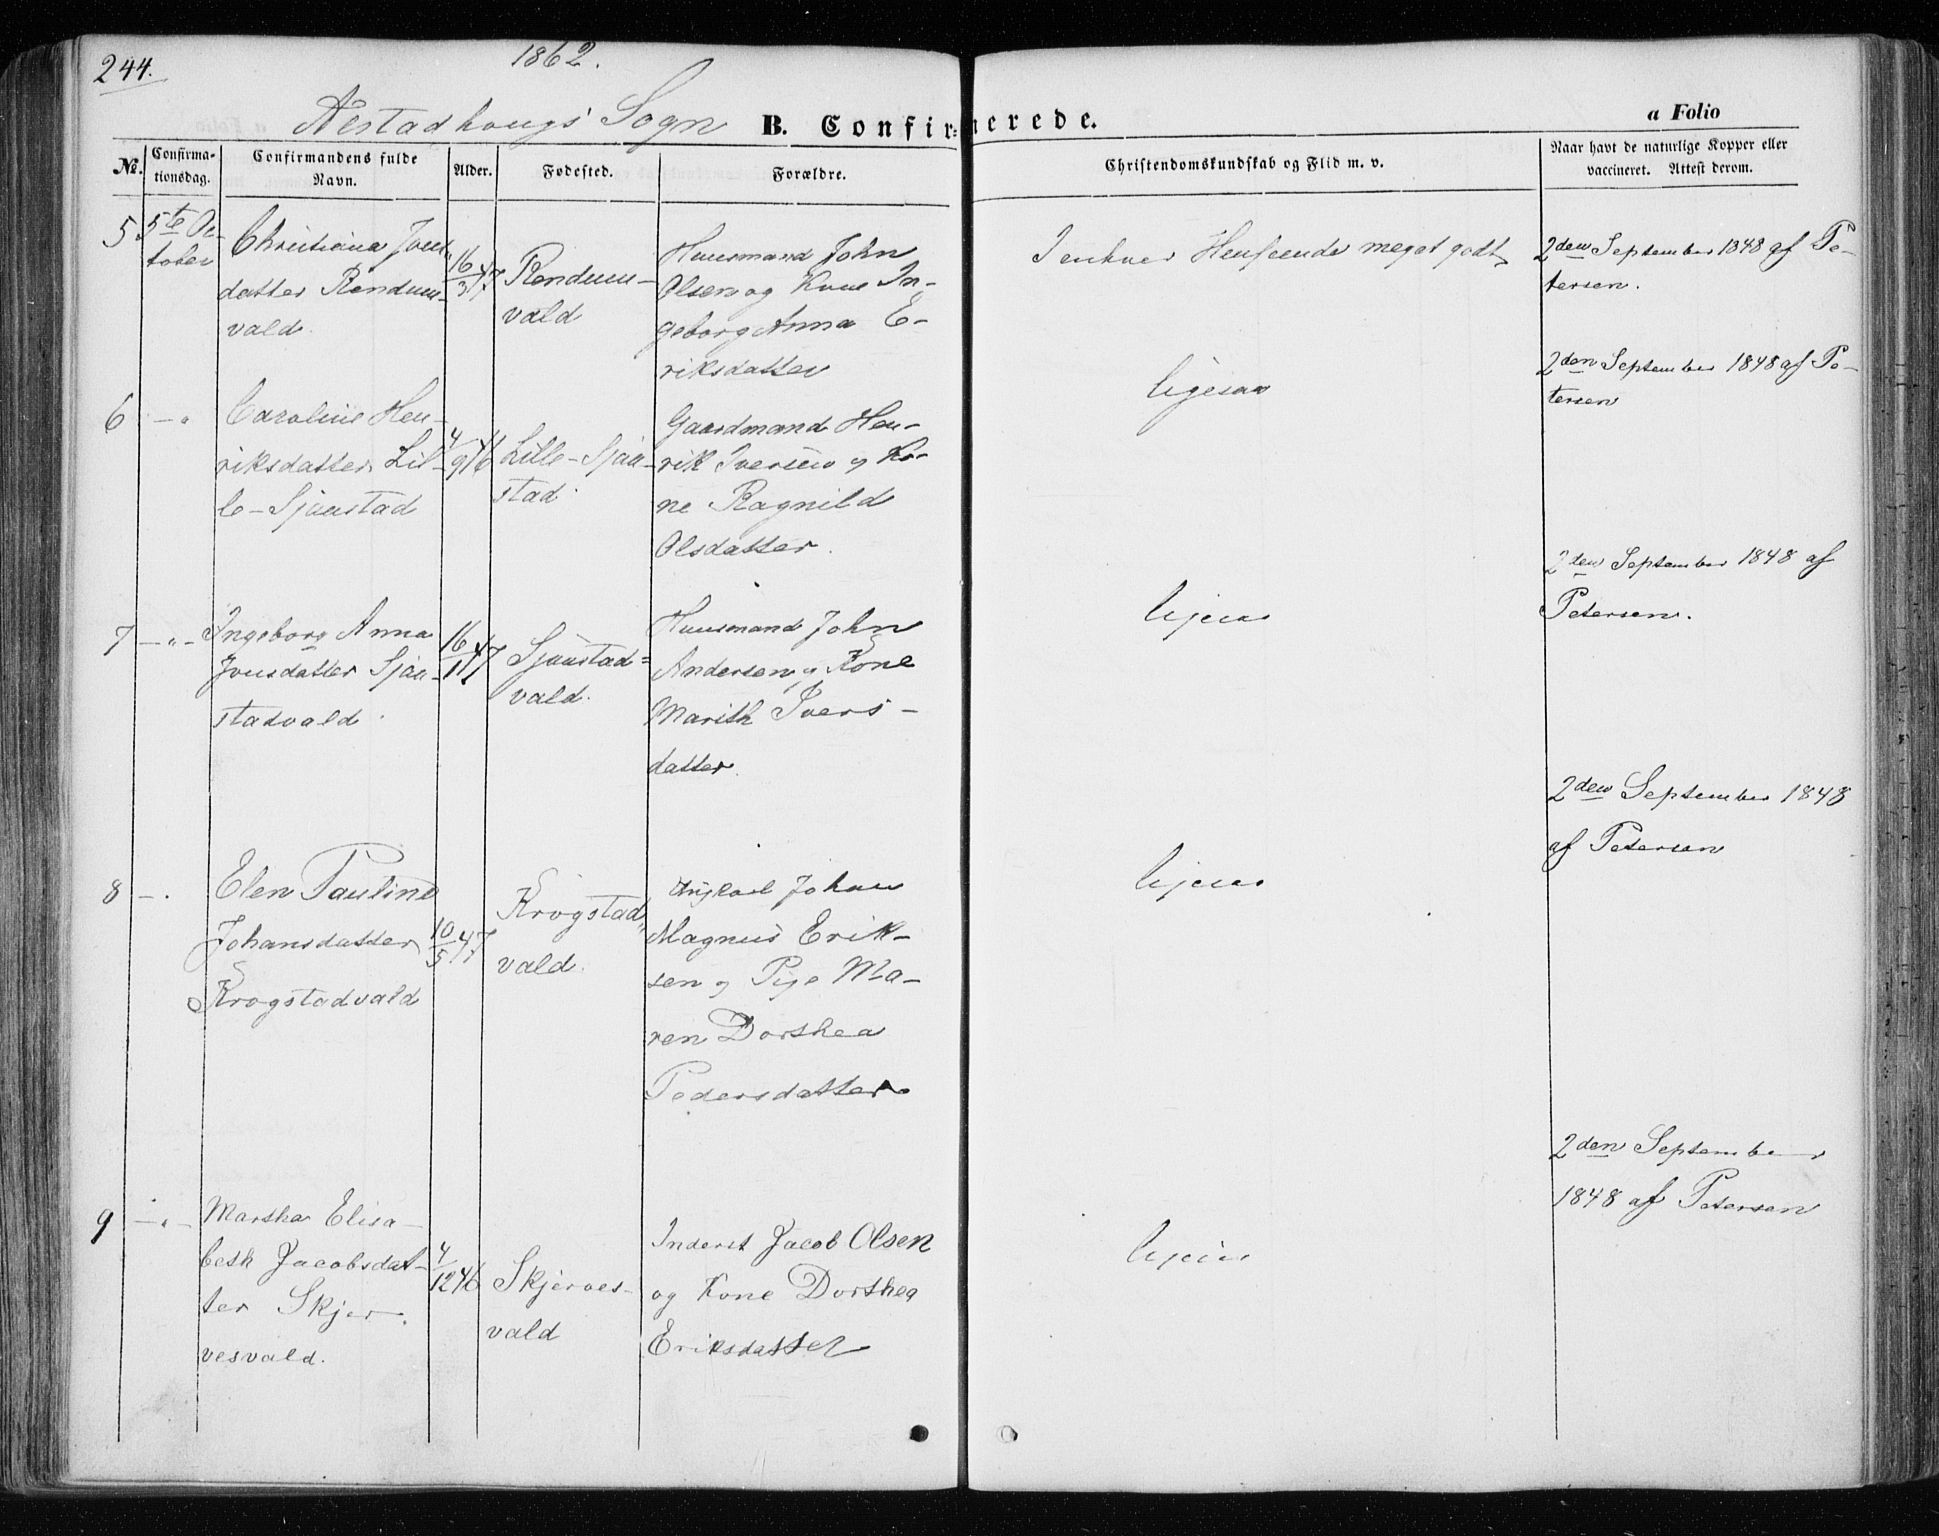 244.
1862.
Nestadhougs Sogn B. Confirmerede.
a Folio
No. Confirma-tionsdag. Confirmandens fulde Navn. Alder. Fødested. Forældre. Christendomskundskab og Flid m. v. Naar havt de naturlige Kopper eller vaccineret. Attest derom.
5. 5te Oc-
tober
Christiana Jons-
datter Rendum-
vald.
16/3 47
Rendum-
vald
Huusmand John
Olsen og Kone In-
geborg Anna E-
riksdatter
I enhver Henseende meget godt
2den September 1848 af Pe-
tersen.
6 - "
Caroline Hen-
riksdatter Lil-
le-Sjaastad
4/9 46
Lille-Sjaa-
stad.
Gaardmand Hen-
rik Iversen og Ko-
ne Ragnild
Olsdatter.
ligesaa
2den September 1848 af Pe-
tersen
7 - " -
Ingeborg Anna
Jonsdatter Sjaa-
stadvald.
16/1 47
Sjaastad=
vald.
Huusmand John
Andersen og Kone
Marith Ivers-
datter.
ligesaa
2den September 1848 af
Petersen.
8 - .
Elen Pauline
Johansdatter
Krogstadvald
10/5 47
Krogstad
vald.
Johan
Magnus Erik-
sen og Pige Ma-
ren Dorthea
Pedersdatter
ligesaa
2den September 1848
af Petersen
9 - " -
Martha Elisa-
beth Jacobsdat-
ter Skjer-
vesvald.
4/12 46
Skjerves-
vald
Inderst Jacob Olsen
og Kone Dorthea
Eriksdatter
ligesaa
2den September
1848 af Petersen